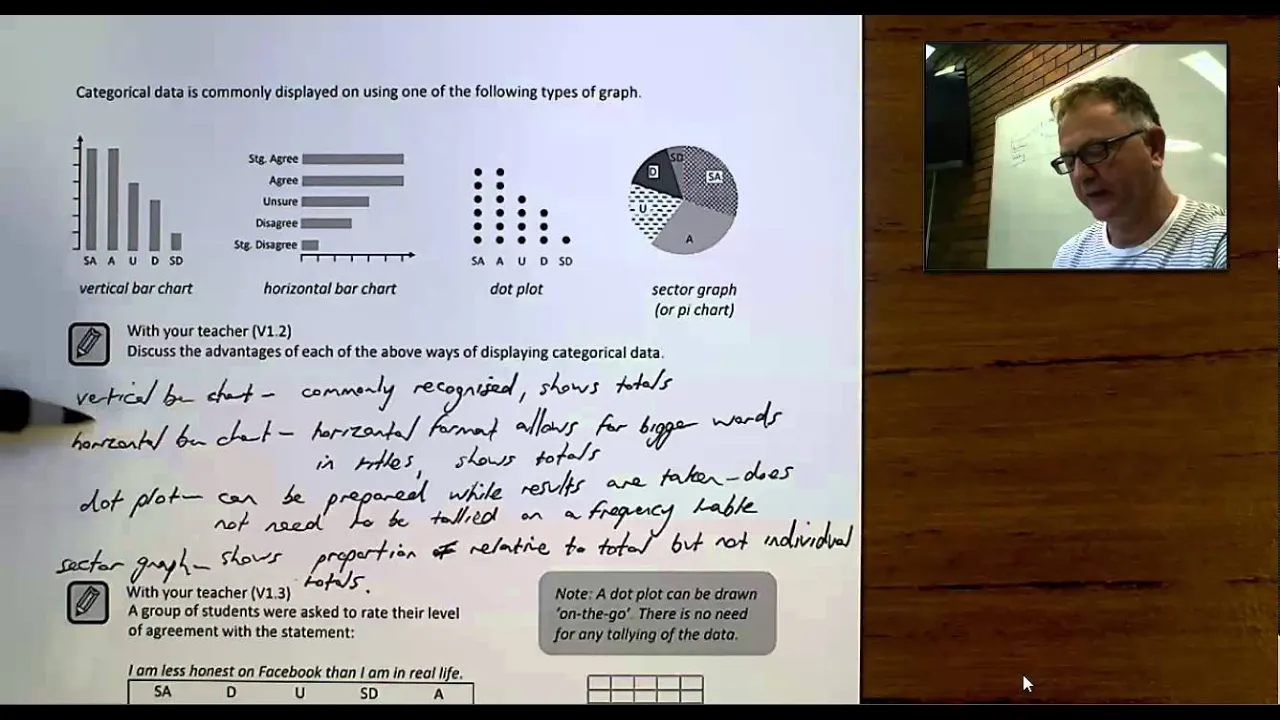 Categorical data is commonly displayed on using one of the following types of graph.
SA A U D SD
vertical bar chart
Stg. Agree
Agree
Unsure
Disagree
Stg. Disagree
horizontal bar chart
SA A U D SD
dot plot
SD
D
SA
U
A
sector graph
(or pi chart)
With your teacher (V1.2)
Discuss the advantages of each of the above ways of displaying categorical data.
vertical bar chart - commonly recognised, shows totals
horizontal bar chart - horizontal format allows for bigger words
in titles, shows totals
dot plot - can be prepared while results are taken - does
not need to be tallied on a frequency table
sector graph - shows proportion relative to total but not individual
totals.
With your teacher (V1.3)
A group of students were asked to rate their level
of agreement with the statement:
Note: A dot plot can be drawn
'on-the-go'. There is no need
for any tallying of the data.
I am less honest on Facebook than I am in real life.
SA D U SD A